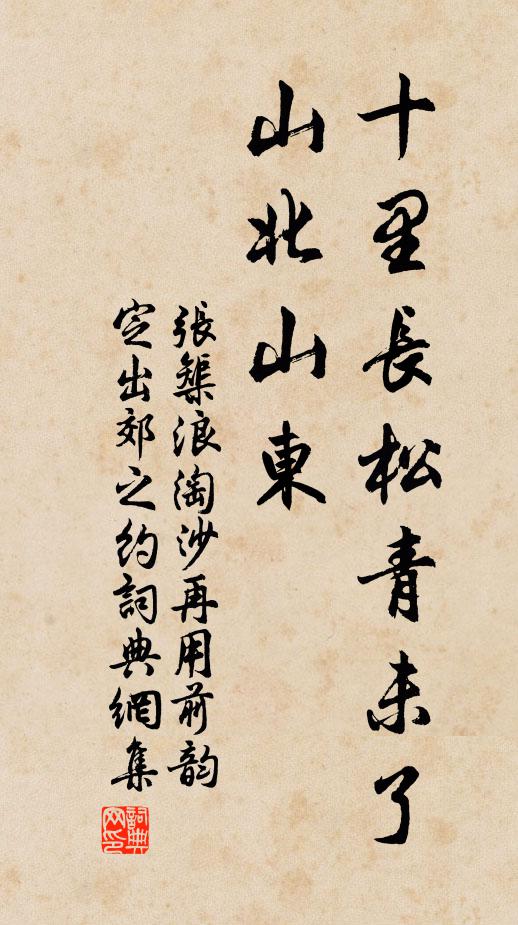 十里長松青未了
山北山東
張榘浪淘沙再用前韵
定出郊之約詞典網集
詞典网印